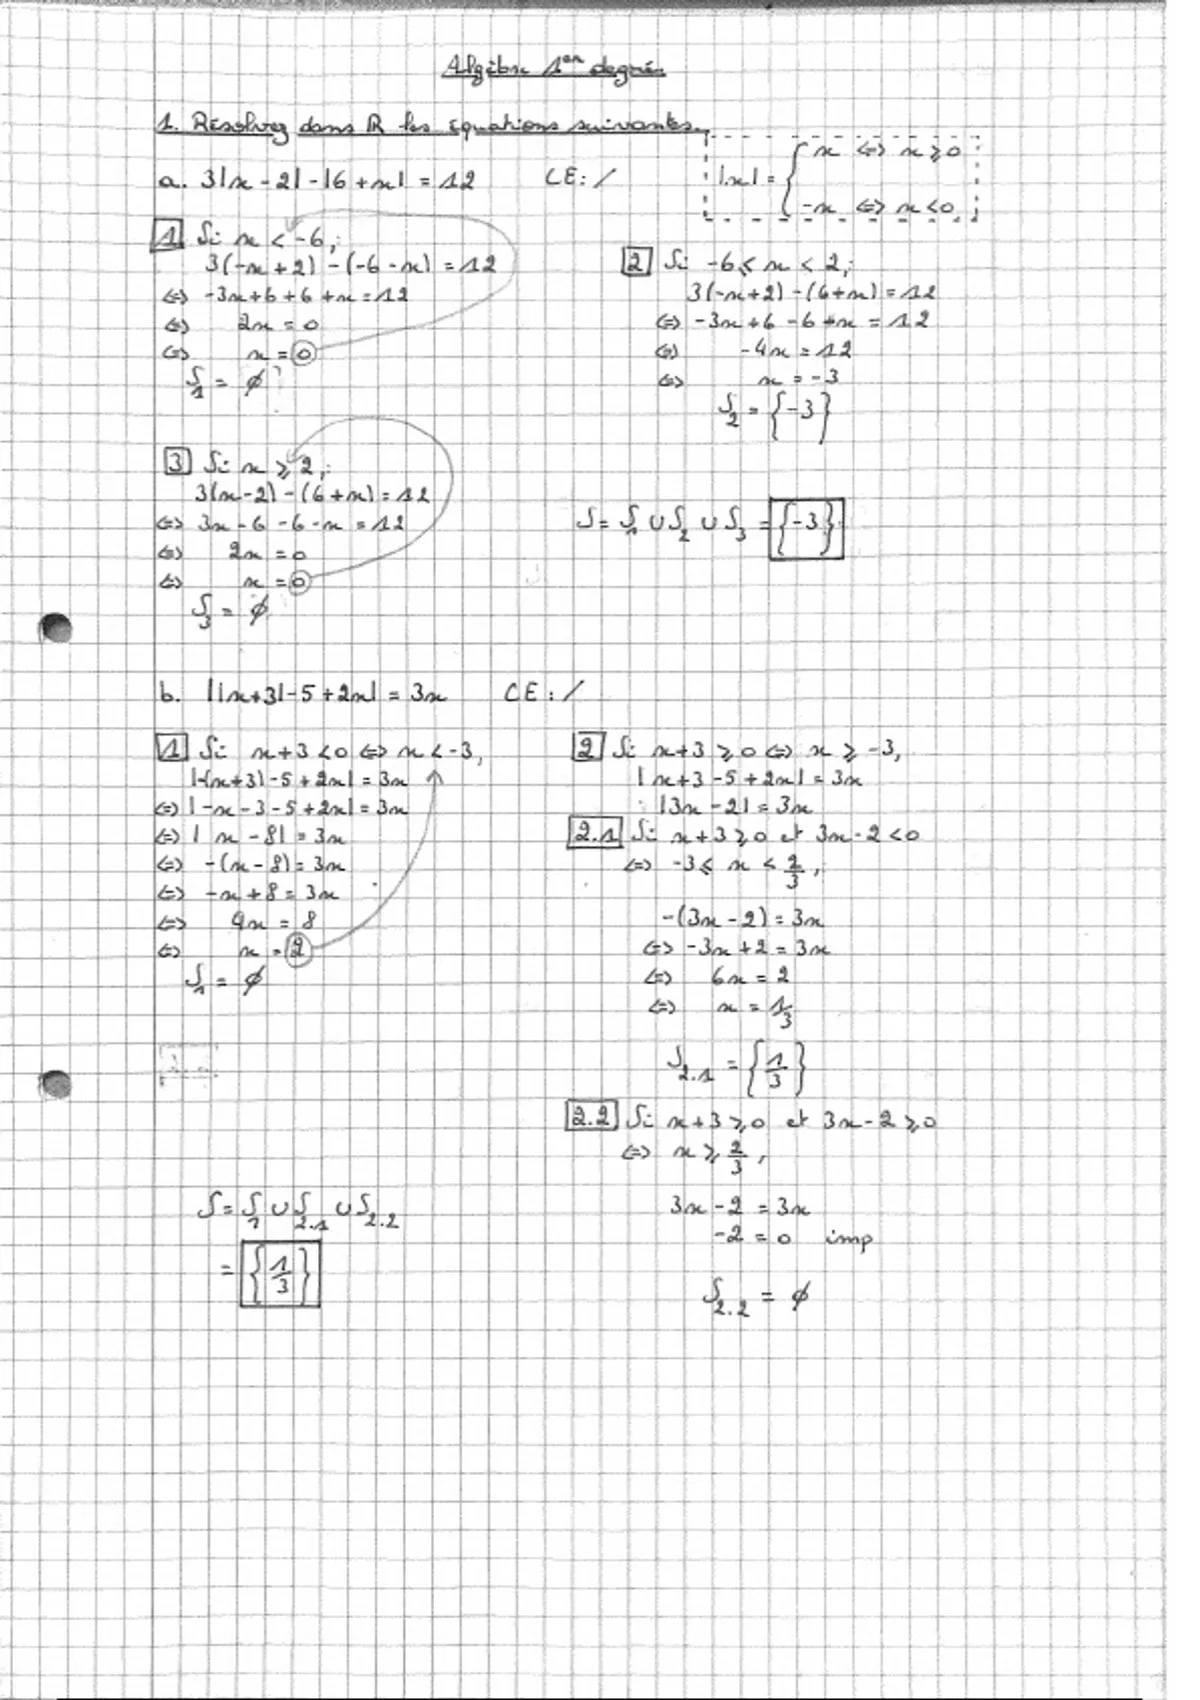 Algèbre 1er degré
1. Résolvez dans ℝ les équations suivantes.
|x| = { x ⟺ x ⩾ 0
-x ⟺ x < 0
a. 3|x - 2| - |6 + x| = 12 CE : /
1 Si x < -6,
3(-x + 2) - (-6 - x) = 12
⟺ -3x + 6 + 6 + x = 12
⟺ 2x = 0
⟺ x = 0
S₁ = ∅
2 Si -6 ⩽ x < 2,
3(-x + 2) - (6 + x) = 12
⟺ -3x + 6 - 6 - x = 12
⟺ -4x = 12
⟺ x = -3
S₂ = {-3}
3 Si x ⩾ 2,
3(x - 2) - (6 + x) = 12
⟺ 3x - 6 - 6 - x = 12
⟺ 2x = 0
⟺ x = 0
S₃ = ∅
S = S₁ ∪ S₂ ∪ S₃ = {-3}
b. ||x + 3| - 5 + 2x| = 3x CE : /
1 Si x + 3 < 0 ⟺ x < -3,
|-(x + 3) - 5 + 2x| = 3x
⟺ |-x - 3 - 5 + 2x| = 3x
⟺ |x - 8| = 3x
⟺ -(x - 8) = 3x
⟺ -x + 8 = 3x
⟺ 4x = 8
⟺ x = 2
S₁ = ∅
2 Si x + 3 ⩾ 0 ⟺ x ⩾ -3,
|x + 3 - 5 + 2x| = 3x
|3x - 2| = 3x
2.1 Si x + 3 ⩾ 0 et 3x - 2 < 0
⟺ -3 ⩽ x < 2/3,
-(3x - 2) = 3x
⟺ -3x + 2 = 3x
⟺ 6x = 2
⟺ x = 1/3
S₂.₁ = {1/3}
2.2 Si x + 3 ⩾ 0 et 3x - 2 ⩾ 0
⟺ x ⩾ 2/3,
3x - 2 = 3x
-2 = 0 imp
S₂.₂ = ∅
S = S₁ ∪ S₂.₁ ∪ S₂.₂
= {1/3}